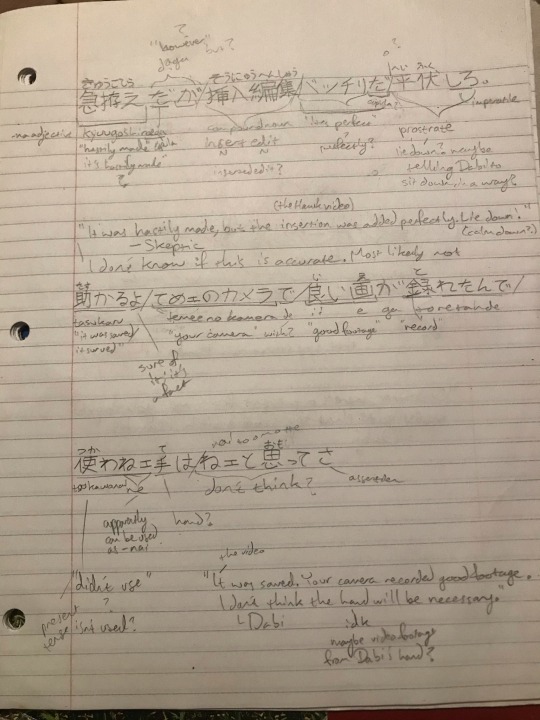 ?
"however" but?
daga ?
きゅうごしら そうにゅうへんしゅう へい ふく
急拵えだが/挿入編集/バッチリだ/平伏しろ。
na adjective kyuugoshiraeda compound noun "looks perfect" prostrate imperative
"hastily made" insert edit ? lie down? maybe
it's hastily made N N perfectly? telling Dabi to
? inserted edit? sit down, in a way?
(the Hawk video)
"It was hastily made, but the insertion was added perfectly. Lie down!"
- Skeptic (calm down?)
I don't know if this is accurate. Most likely not
たす い え と
助かるよ/てめェのカメラで/良い画が録れたんで/
tasukaru temee no kamera de ii e ga toretande
"it was saved "your camera" with? "good footage" "record"
it served"
sure of
it, it's
a fact
つか て おも
使わねェ手はねェと思ってさ
tsukawanai ne don't think? assertion
apparently hand?
can be used
as -nai
the video
"didn't use" "It was saved. Your camera recorded good footage.
? I don't think the hand will be necessary."
present tense isn't used? - Dabi
idk
maybe video footage
from Dabi's hand?